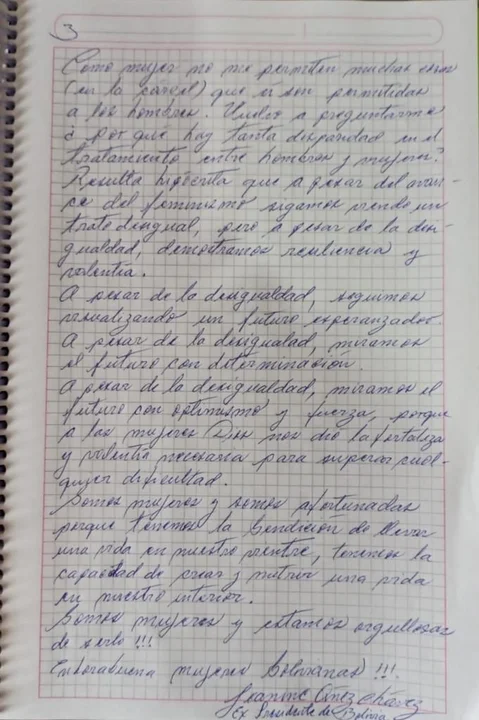 3
Como mujer no me permiten muchas cosas
(en la cárcel) que si son permitidas
a los hombres. Vuelvo a preguntarme
¿ por que hay tanta disparidad en el
tratamiento entre hombres y mujeres?
Resulta hipócrita que a pesar del avan-
ce del feminismo sigamos viendo un
trato desigual, pero a pesar de la desi-
gualdad, demostramos resiliencia y
valentía.
A pesar de la desigualdad, seguimos
visualizando un futuro esperanzador.
A pesar de la desigualdad, miramos
el futuro con determinación.
A pesar de la desigualdad, miramos el
futuro con optimismo y fuerza, porque
a las mujeres Dios nos dio la fortaleza
y valentía necesaria para superar cual-
quier dificultad.
Somos mujeres y somos afortunadas
porque tenemos la bendición de llevar
una vida en nuestro vientre, tenemos la
capacidad de crear y nutrir una vida
en nuestro interior.
Somos mujeres y estamos orgullosas
de serlo !!!
Enhorabuena mujeres bolivianas !!!
Jeanine Añez Chávez
Ex Presidente de Bolivia